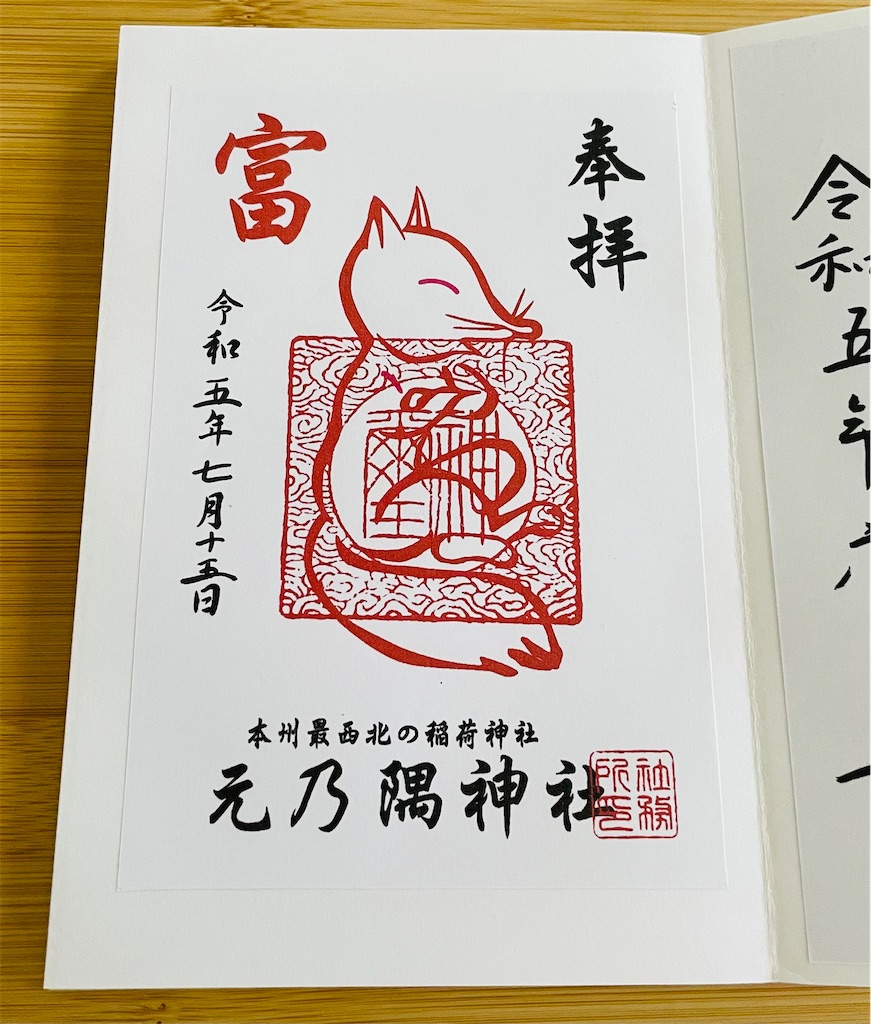 奉拝
富
令和五年七月十五日
本州最西北の稲荷神社
元乃隅神社
社務所印
令和五年